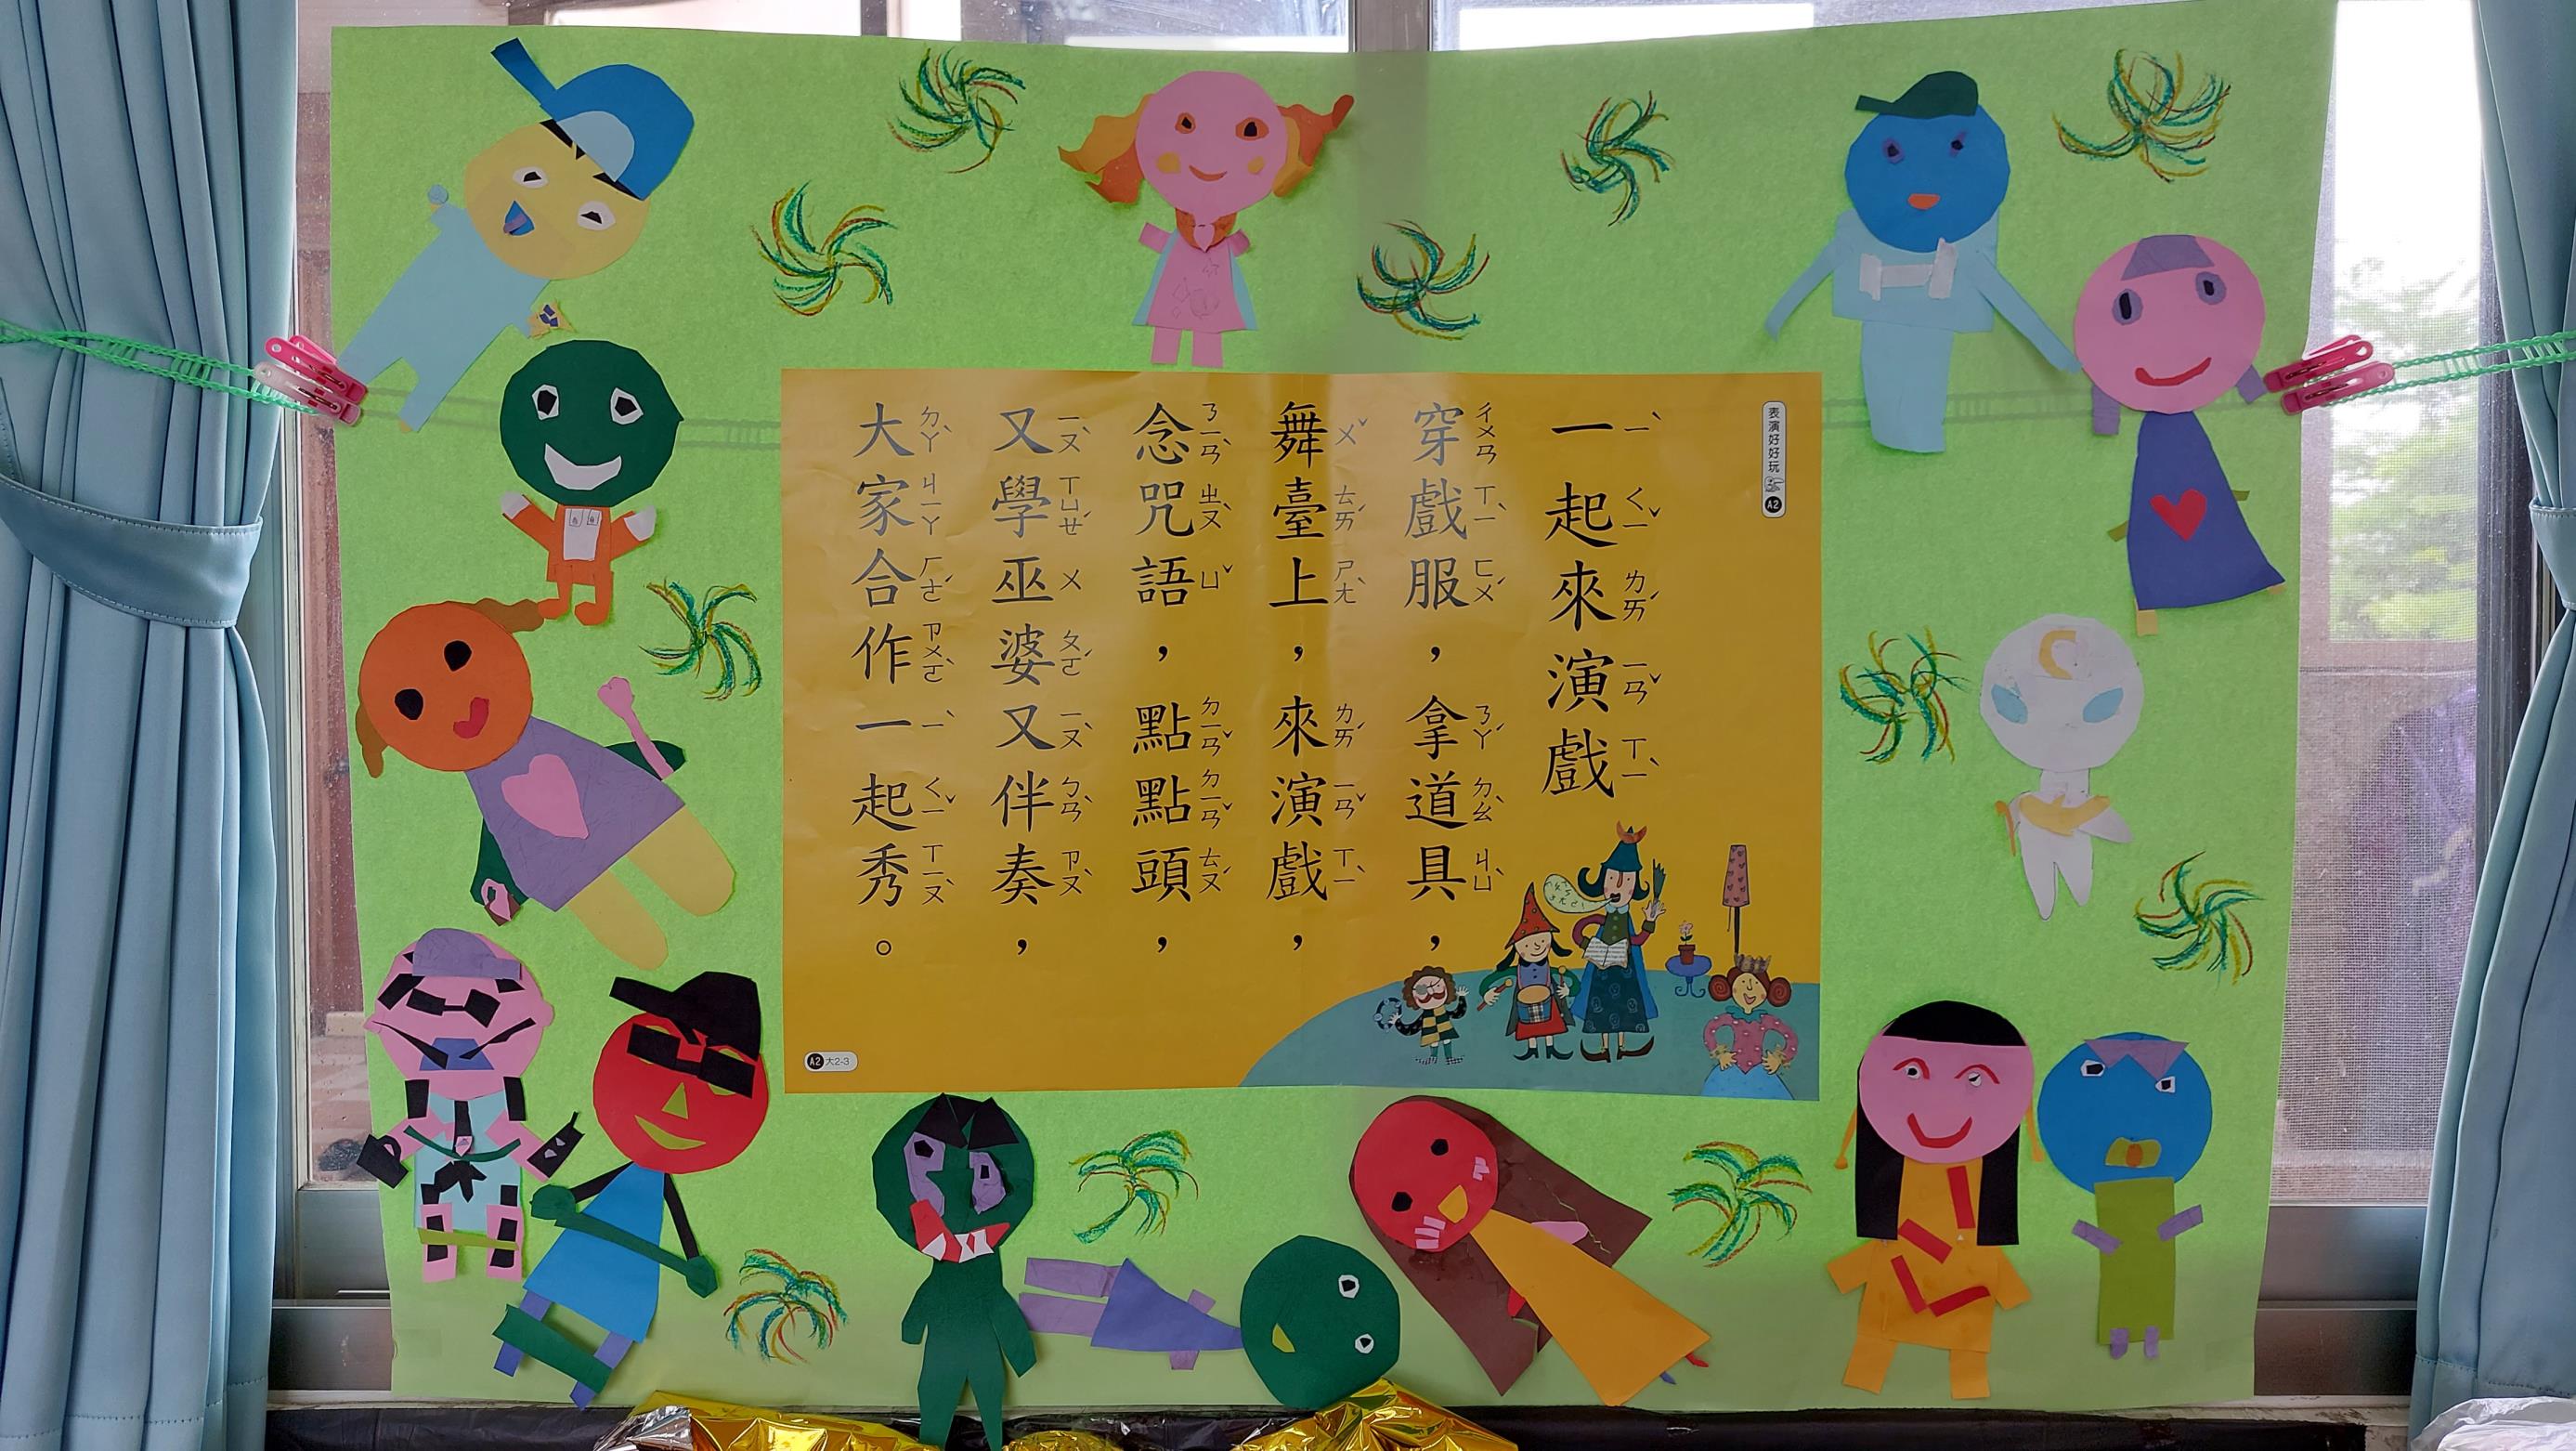 表演好好玩 A2
一起來演戲
穿戲服，拿道具，
舞臺上，來演戲，
念咒語，點點頭，
又學巫婆又伴奏，
大家合作一起秀。
A2 大2-3